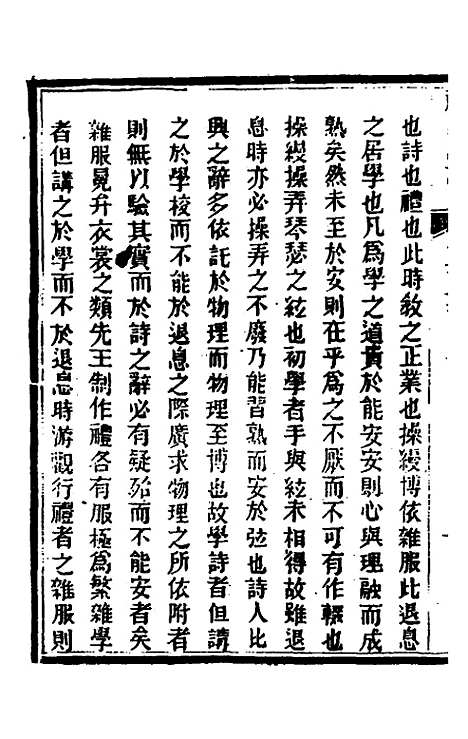 也詩也禮也此時敎之正業也操縵博依雜服此退息
之居學也凡爲學之道貴於能安安則心與理融而成
熟矣然未至於安則在乎爲之不厭而不可有作輟也
操縵操弄琴瑟之絃也初學者手與絃未相得故雖退
息時亦必操弄之不廢乃能習熟而安於弦也詩人比
興之辭多依託於物理而物理至博也故學詩者但講
之於學校而不能於退息之際廣求物理之所依附者
則無以驗其實而於詩之辭必有疑殆而不能安者矣
雜服冕弁衣裳之類先王制作禮各有服極爲繁雜學
者但講之於學而不於退息時游觀行禮者之雜服則